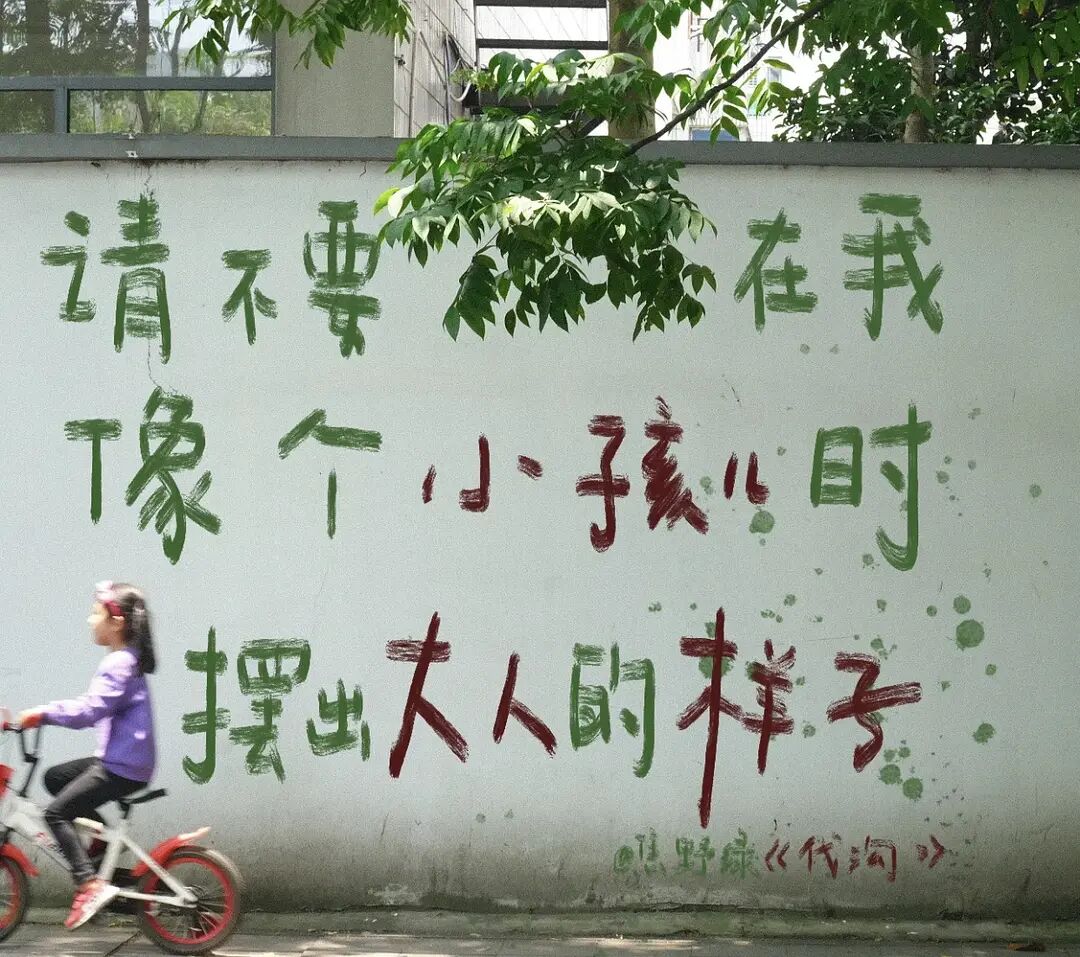 请不要在我
T像个小孩儿时
摆出大人的样子
@焦野绿《代沟》